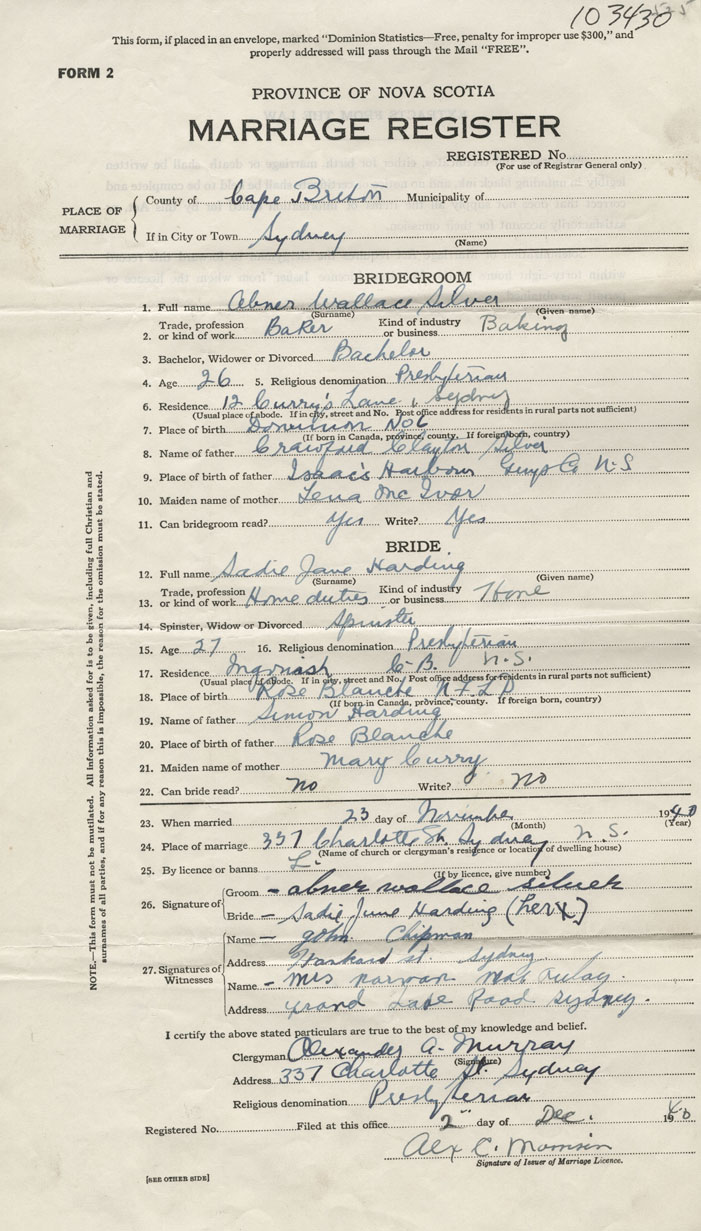 103430
This form, if placed in an envelope, marked "Dominion Statistics—Free, penalty for improper use $300," and
properly addressed will pass through the Mail "FREE".
FORM 2
PROVINCE OF NOVA SCOTIA
MARRIAGE REGISTER
REGISTERED No.
(For use of Registrar General only)
PLACE OF MARRIAGE
County of Cape Breton Municipality of
If in City or Town Sydney
(Name)
BRIDEGROOM
1. Full name Abner Wallace Silver
(Surname) (Given name)
2. Trade, profession or kind of work Baker Kind of industry or business Baking
3. Bachelor, Widower or Divorced Bachelor
4. Age 26 5. Religious denomination Presbyterian
6. Residence 12 Curry's Lane, Sydney
(Usual place of abode. If in city, street and No. Post office address for residents in rural parts not sufficient)
7. Place of birth Dominion No 6
(If born in Canada, province, county. If foreign born, country)
8. Name of father Crawford Clayton Silver
9. Place of birth of father Isaac's Harbour Guys Co N.S
10. Maiden name of mother Lena Mc Ivor
11. Can bridegroom read? Yes Write? Yes
BRIDE
12. Full name Sadie Jane Harding
(Surname) (Given name)
13. Trade, profession or kind of work Home duties Kind of industry or business Home
14. Spinster, Widow or Divorced Spinster
15. Age 27 16. Religious denomination Presbyterian
17. Residence Ingonish C.B. N.S.
(Usual place of abode. If in city, street and No. Post office address for residents in rural parts not sufficient)
18. Place of birth Rose Blanche NFLD
(If born in Canada, province, county. If foreign born, country)
19. Name of father Simon Harding
20. Place of birth of father Rose Blanche
21. Maiden name of mother Mary Curry
22. Can bride read? No Write? No
23. When married 23 day of November 1940
(Month) (Year)
24. Place of marriage 337 Charlotte St. Sydney N.S.
(Name of church or clergyman's residence or location of dwelling house)
25. By licence or banns L.
(If by licence, give number)
26. Signature of
Groom - abner wallace silver
Bride - Sadie Jane Harding (her X)
27. Signatures of Witnesses
Name - John Chipman
Address St. Sydney
Name - Mrs Norman
Address Grand Lake Road Sydney.
I certify the above stated particulars are true to the best of my knowledge and belief.
Clergyman Alexander A. Murray
(Signature)
Address 337 Charlotte St. Sydney
Religious denomination Presbyterian
Registered No. Filed at this office 2" day of Dec. 1940
Alex C. Morrison
Signature of Issuer of Marriage Licence.
[SEE OTHER SIDE]
NOTE.—This form must not be mutilated. All information asked for is to be given, including full Christian and
surnames of all parties, and if for any reason this is impossible, the reason for the omission must be stated.